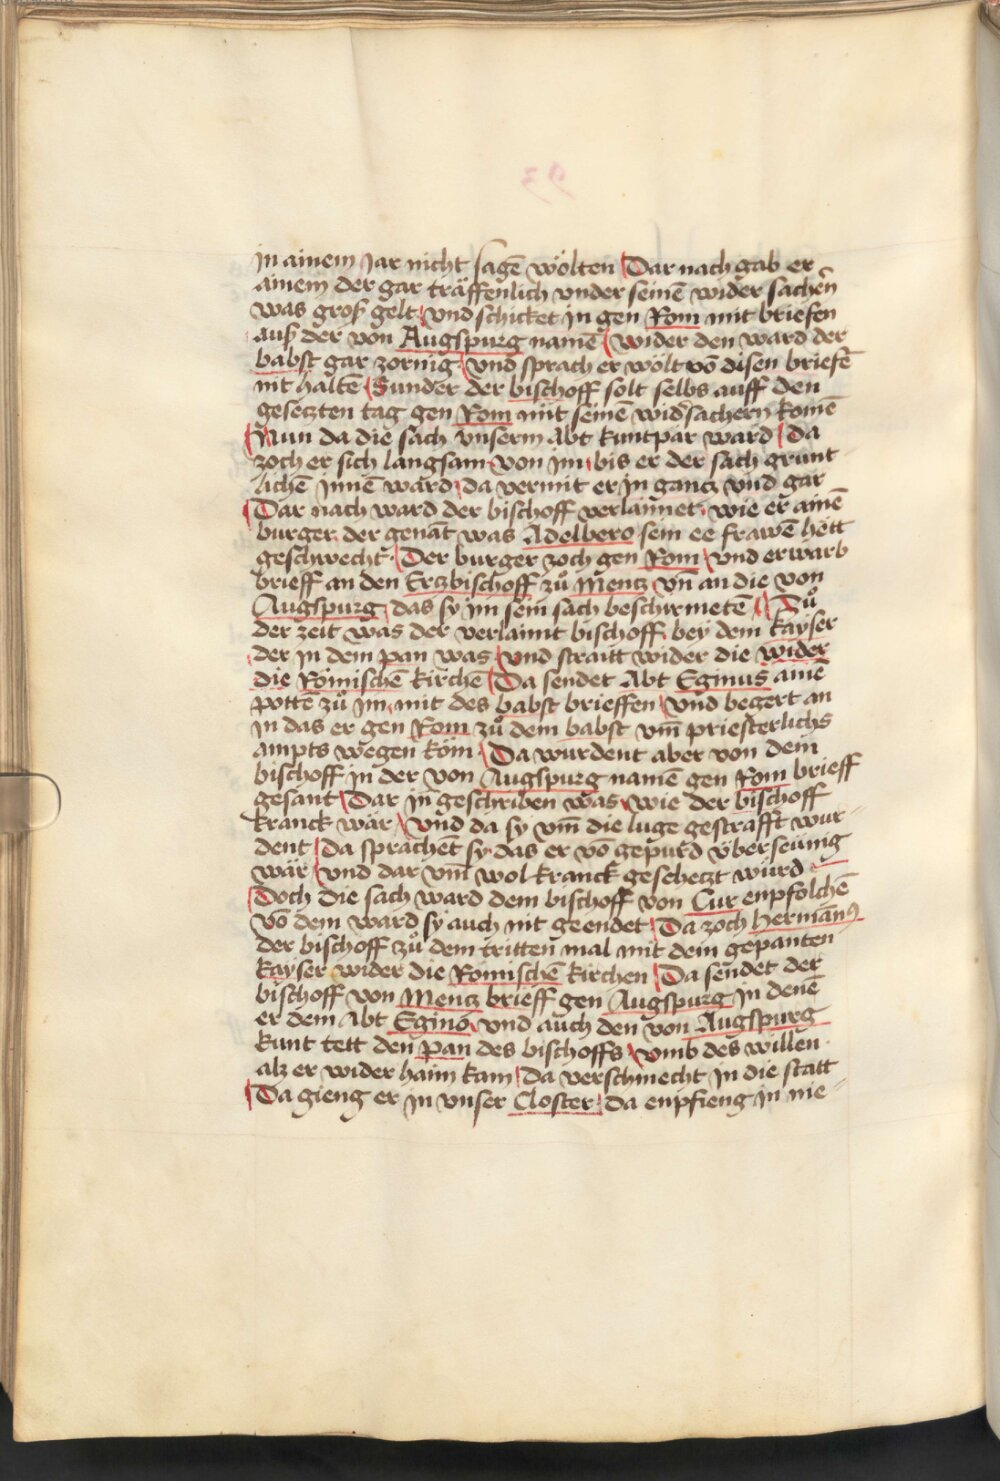 in ainem Jar nicht sagē wölten Dar nach gab er
ainem der gar träffenlich vnder seinē wider sachēn
was groß gelt vnd schicket in gen Rom mit briefen
auß der von Augspurg namē wider den ward der
babst gar zornig vnd sprach er wölt vō disen briefē
nit haltē Sunder der bischoff solt selbs auff den
gesetzten tag gen Rom mit seinē widsachern komē
Nun da die sach vnserm Abt kuntpar ward Da
zoch er sich langsam von im bis er der sach grunt-
lichē innē ward da vermit er in gantz vnd gar
Dar nach ward der bischoff verlaimet wie er ainē
burger der genāt was Adelbero sein ee frawē hett
geschwecht Der burger zoch gen Rom vnd erwarb
brieff an den Ertzbischoff zů Mentz vn̄ an die von
Augspurg das sy im sein sach beschirmetē Zů
der zeit was der verlaimt bischoff bey dem kayser
der in dem pan was vnd straitt wider die wider
die Römischē kirchē Da sendet Abt Eginus ainē
pottē zů im mit des babst brieffen vnd begert an
in das er gen Rom zů dem babst vm̄ priesterlichs
ampts wegen köm Da wurdent aber von dem
bischoff in der von Augspurg namē gen Rom brieff
gesant Dar in geschriben was wie der bischoff
kranck wär vnd da sy vm̄ die luge gestrafft wur-
dent Da sprachēt sy das er vō gepurd überseünig
wär vnd dar vm̄ wol kranck geschetzt würd
Doch die sach ward dem bischoff von Cur enpfolchē
vō dem ward sy auch nit geendet Da zoch Hermān9
der bischoff zů dem tritten mal mit dem gepanten
kayser wider die Römischē kirchen Da sendet der
bischoff von Mentz brieff gen Augspurg in denē
er dem Abt Eginō vnd auch den von Augspurg
kunt tett den pan des bischoffs vmb des willen
alz er wider haim kam Da verschmecht in die statt
Da gieng er in vnser Closter da enpfieng in nie-